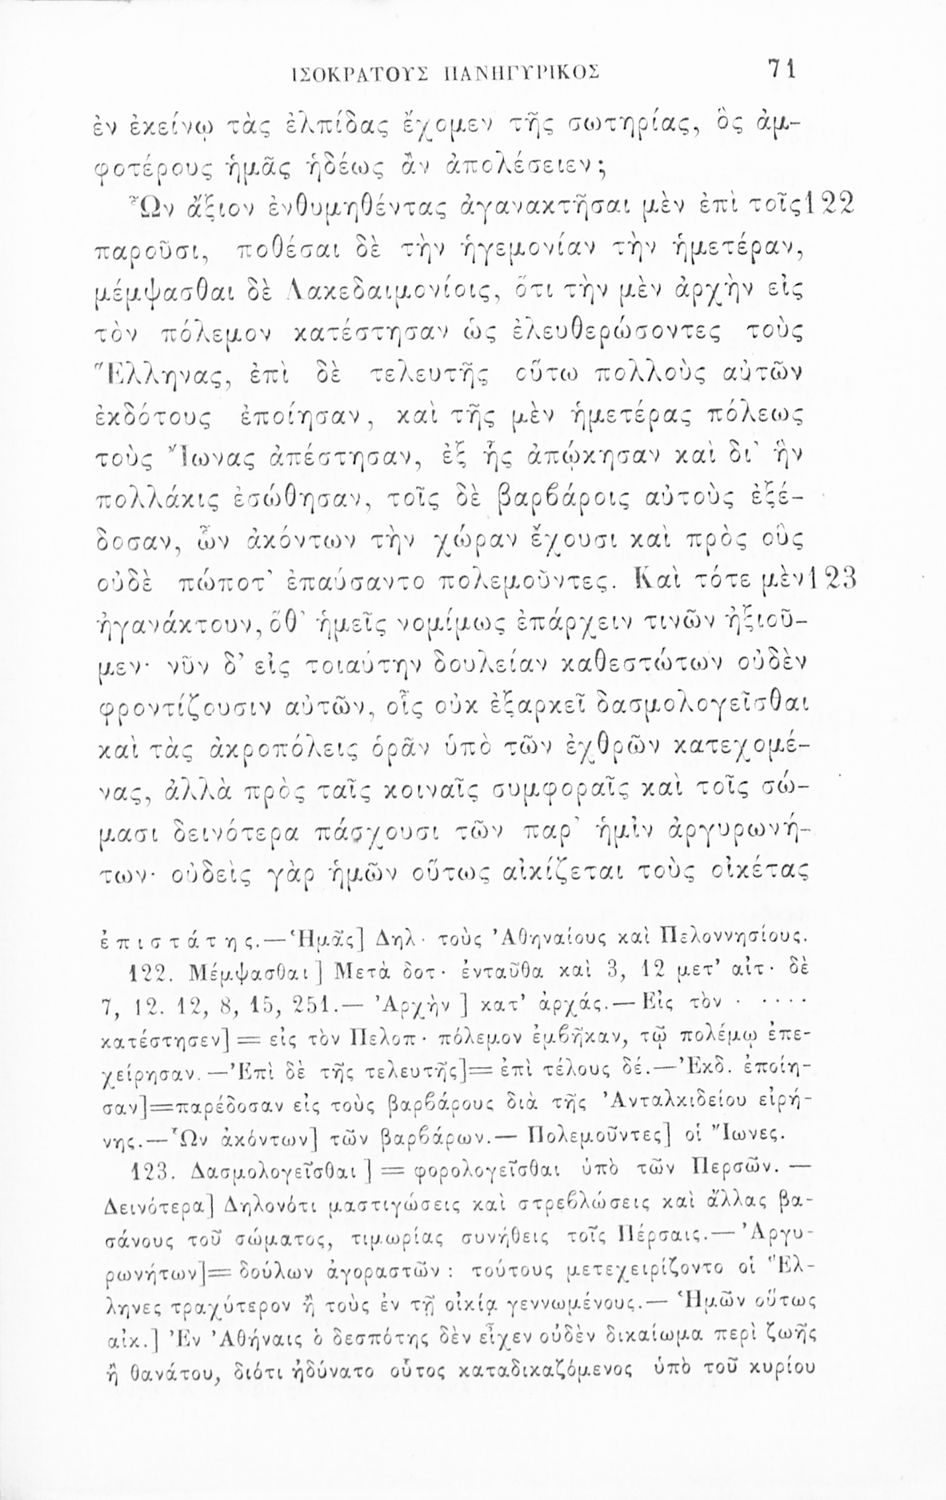 ΙΣΟΚΡΑΤΟΥΣ ΠΑΝΗΓΥΡΙΚΟΣ 71
ἐν ἐκείνῳ τὰς ἐλπίδας ἔχομεν τῆς σωτηρίας, ὃς ἀμ-
φοτέρους ἡμᾶς ἡδέως ἂν ἀπολέσειεν;
Ὧν ἄξιον ἐνθυμηθέντας ἀγανακτῆσαι μὲν ἐπὶ τοῖς 122
παροῦσι, ποθέσαι δὲ τὴν ἡγεμονίαν τὴν ἡμετέραν,
μέμψασθαι δὲ Λακεδαιμονίοις, ὅτι τὴν μὲν ἀρχὴν εἰς
τὸν πόλεμον κατέστησαν ὡς ἐλευθερώσοντες τοὺς
Ἕλληνας, ἐπὶ δὲ τελευτῆς οὕτω πολλοὺς αὐτῶν
ἐκδότους ἐποίησαν, καὶ τῆς μὲν ἡμετέρας πόλεως
τοὺς Ἴωνας ἀπέστησαν, ἐξ ἧς ἀπῴκησαν καὶ δι' ἣν
πολλάκις ἐσώθησαν, τοῖς δὲ βαρβάροις αὐτοὺς ἐξέ-
δοσαν, ὧν ἀκόντων τὴν χώραν ἔχουσι καὶ πρὸς οὓς
οὐδὲ πώποτ' ἐπαύσαντο πολεμοῦντες. Καὶ τότε μὲν 123
ἠγανάκτουν, ὅθ' ἡμεῖς νομίμως ἐπάρχειν τινῶν ἠξιοῦ-
μεν· νῦν δ' εἰς τοιαύτην δουλείαν καθεστώτων οὐδὲν
φροντίζουσιν αὐτῶν, οἷς οὐκ ἐξαρκεῖ δασμολογεῖσθαι
καὶ τὰς ἀκροπόλεις ὁρᾶν ὑπὸ τῶν ἐχθρῶν κατεχομέ-
νας, ἀλλὰ πρὸς ταῖς κοιναῖς συμφοραῖς καὶ τοῖς σώ-
μασι δεινότερα πάσχουσι τῶν παρ' ἡμῖν ἀργυρωνή-
των· οὐδεὶς γὰρ ἡμῶν οὕτως αἰκίζεται τοὺς οἰκέτας
ἐπιστάτης.—Ἡμᾶς] Δηλ· τοὺς Ἀθηναίους καὶ Πελοννησίους.
122. Μέμψασθαι] Μετὰ δοτ· ἐνταῦθα καὶ 3, 12 μετ' αἰτ· δὲ
7, 12. 12, 8, 15, 251.— Ἀρχὴν] κατ' ἀρχάς.—Εἰς τὸν · ····
κατέστησεν] = εἰς τὸν Πελοπ· πόλεμον ἐμβῆκαν, τῷ πολέμῳ ἐπε-
χείρησαν.—Ἐπὶ δὲ τῆς τελευτῆς]= ἐπὶ τέλους δέ.—Ἐκδ. ἐποίη-
σαν]=παρέδοσαν εἰς τοὺς βαρβάρους διὰ τῆς Ἀνταλκιδείου εἰρή-
νης.—Ὧν ἀκόντων] τῶν βαρβάρων.— Πολεμοῦντες] οἱ Ἴωνες.
123. Δασμολογεῖσθαι] = φορολογεῖσθαι ὑπὸ τῶν Περσῶν. —
Δεινότερα] Δηλονότι μαστιγώσεις καὶ στρεβλώσεις καὶ ἄλλας βα-
σάνους τοῦ σώματος, τιμωρίας συνήθεις τοῖς Πέρσαις.— Ἀργυ-
ρωνήτων]= δούλων ἀγοραστῶν : τούτους μετεχειρίζοντο οἱ Ἕλ-
ληνες τραχύτερον ἢ τοὺς ἐν τῇ οἰκίᾳ γεννωμένους.— Ἡμῶν οὕτως
αἰκ.] Ἐν Ἀθήναις ὁ δεσπότης δὲν εἶχεν οὐδὲν δικαίωμα περὶ ζωῆς
ἢ θανάτου, διότι ἠδύνατο οὗτος καταδικαζόμενος ὑπὸ τοῦ κυρίου